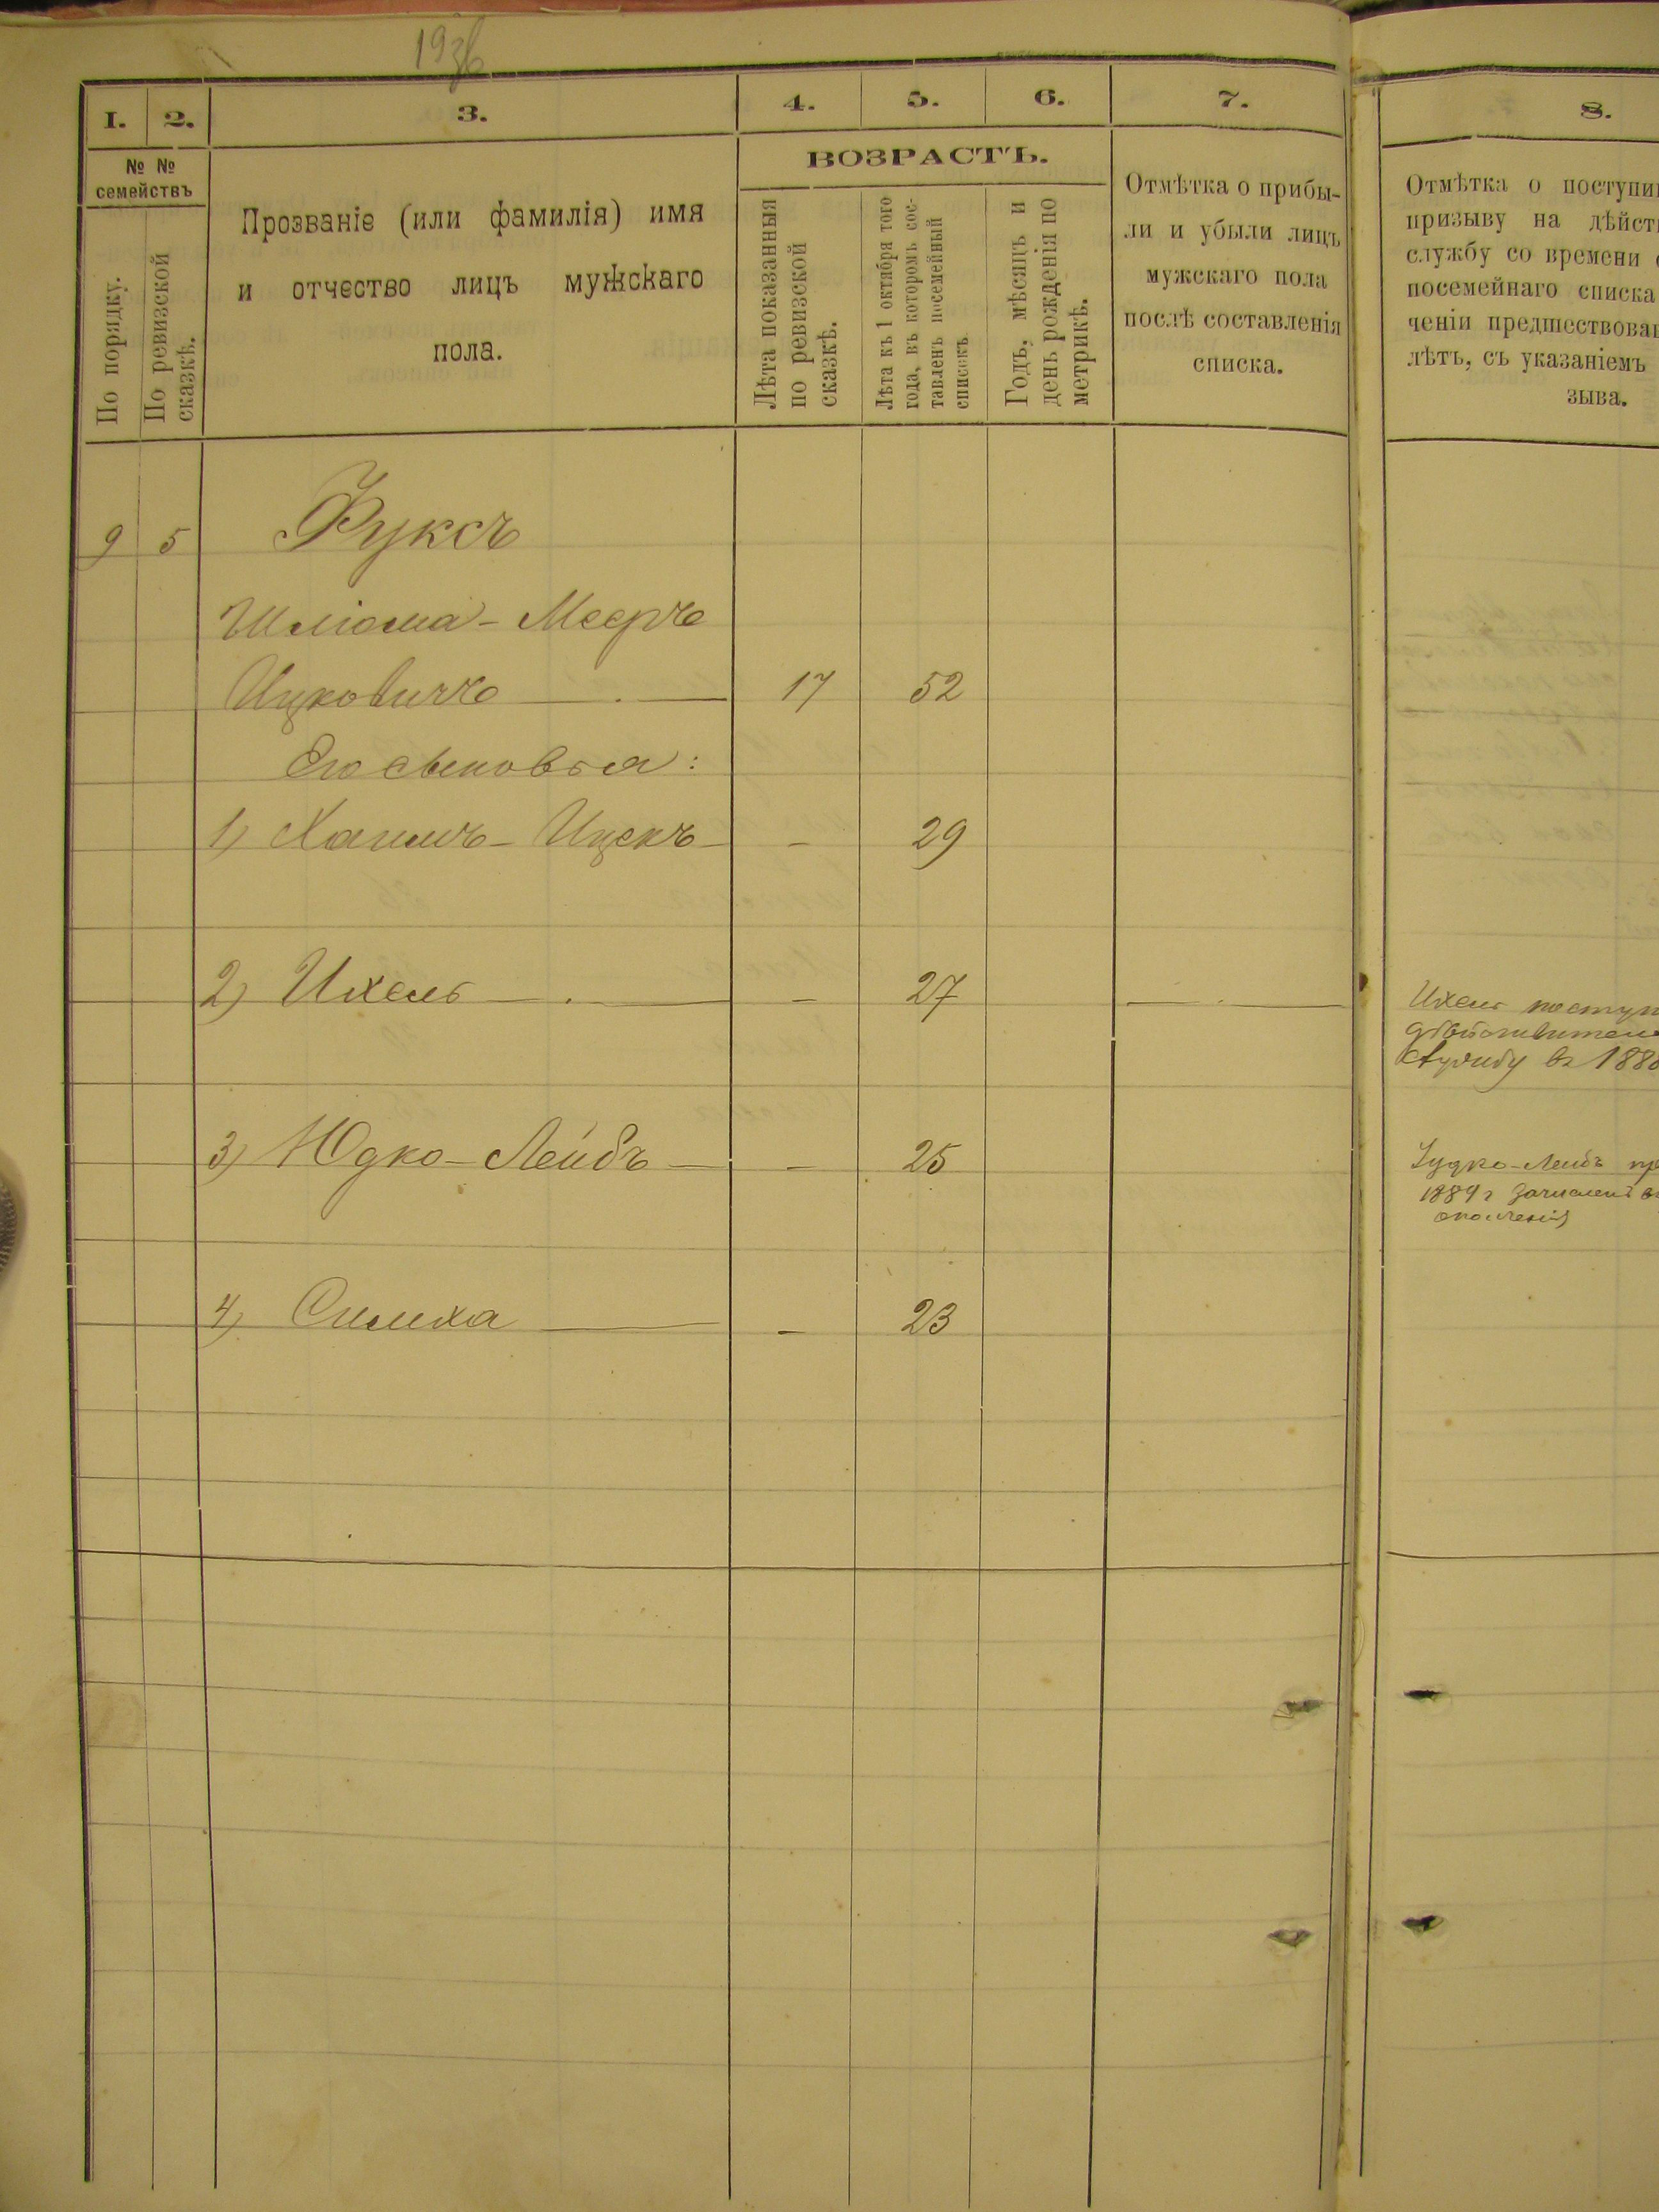 193б
1. 2. 3. 4. 5. 6. 7.
№ №
семействъ
По порядку.
По ревизской
сказкѣ.
Прозваніе (или фамилія) имя
и отчество лицъ мужскаго
пола.
ВОЗРАСТЪ.
Лѣта показанныя
по ревизской
сказкѣ.
Лѣта къ 1 октября того
года, въ которомъ сос-
тавленъ посемейный
списокъ
Годъ, мѣсяцъ и
день рожденія по
метрикѣ.
Отмѣтка о прибы-
ли и убыли лицъ
мужскаго пола
послѣ составленія
списка.
9 5 Фуксъ
Шліома - Мееръ
Ицковичъ 17 52
Его сыновья:
1) Хаимъ - Ицекъ - 29
2) Ихель - 27
3) Юдко - Лейбъ - 25
4) Симха - 23
8.
Отмѣтка о поступи
призыву на дѣйст
службу со времени
посемейнаго списка
ченіи предшествова
лѣтъ, съ указаніемъ
зыва.
Ихель поступ
дѣйствител
службу въ 188
Іудко-Лейбъ пр
1889 г зачислен в
ополченіе